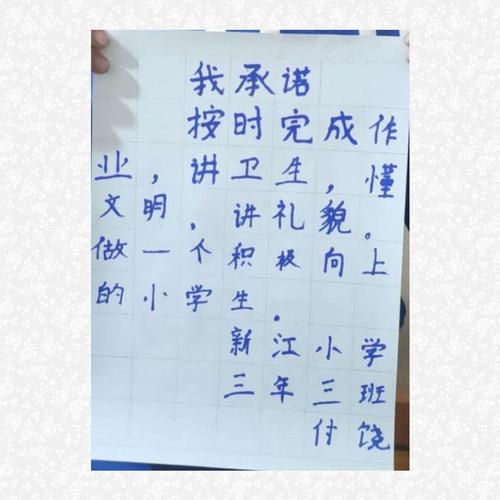 我承诺
按时完成作
业，讲卫生，懂
文明，讲礼貌。
做一个积极向上
的小学生。
新江小学
三年三班
付饶